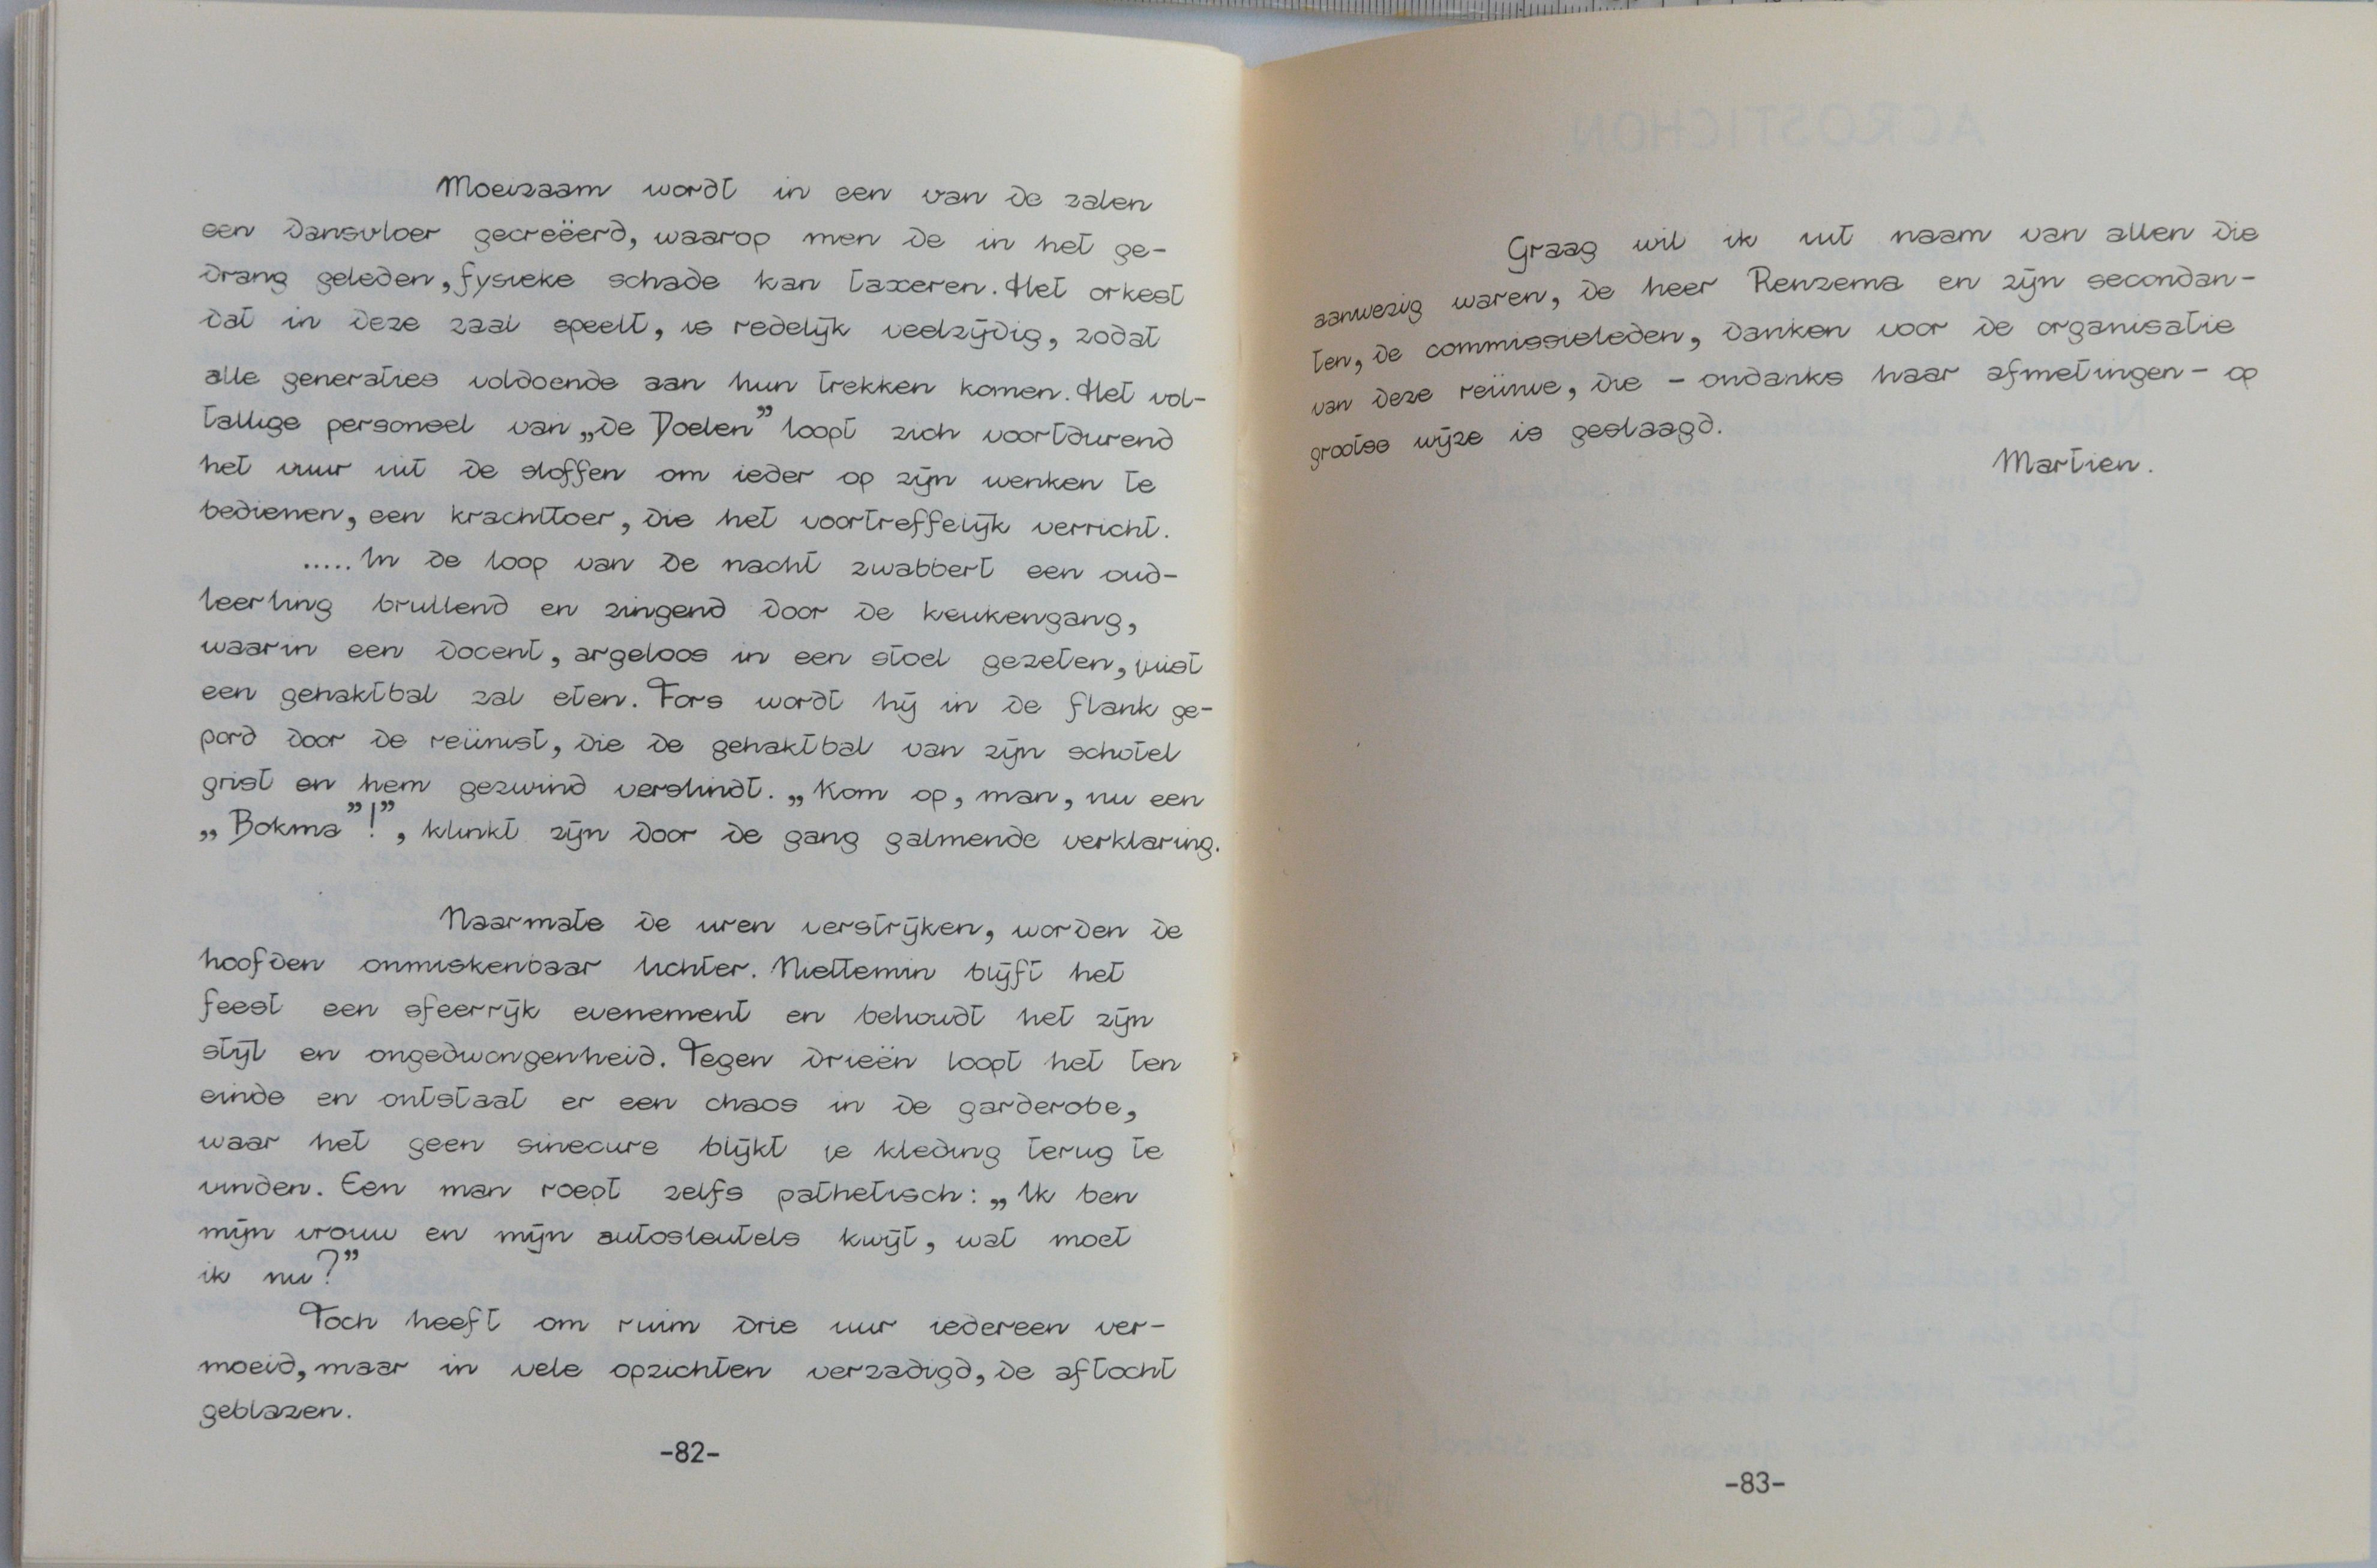 Moeizaam wordt in een van de zalen
een dansvloer gecreëerd, waarop men de in het ge-
drang geleden, fysieke schade kan taxeren. Het orkest
dat in deze zaal speelt, is redelijk veelzijdig, zodat
alle generaties voldoende aan hun trekken komen. Het vol-
tallige personeel van „De Doelen” loopt zich voortdurend
het vuur uit de sloffen om ieder op zijn wenken te
bedienen, een krachttoer, die het voortreffelijk verricht.
..... In de loop van de nacht zwabbert een oud-
leerling brullend en zingend door de keukengang,
waarin een docent, argeloos in een stoel gezeten, juist
een gehaktbal zal eten. Fors wordt hij in de flank ge-
pord door de reünist, die de gehaktbal van zijn schotel
grist en hem gezwind verslindt. „Kom op, man, nu een
„Bokma”!”, klinkt zijn door de gang galmende verklaring.
Naarmate de uren verstrijken, worden de
hoofden onmiskenbaar lichter. Niettemin blijft het
feest een sfeerrijk evenement en behoudt het zijn
stijl en ongedwongenheid. Tegen drieën loopt het ten
einde en ontstaat er een chaos in de garderobe,
waar het geen sinecure blijkt je kleding terug te
vinden. Een man roept zelfs pathetisch: „Ik ben
mijn vrouw en mijn autosleutels kwijt, wat moet
ik nu?”
Toch heeft om ruim drie uur iedereen ver-
moeid, maar in vele opzichten verzadigd, de aftocht
geblazen.
-82-
Graag wil ik uit naam van allen die
aanwezig waren, de heer Renzema en zijn secondan-
ten, de commissieleden, danken voor de organisatie
van deze reünie, die - ondanks haar afmetingen - op
grootse wijze is geslaagd.
Martien.
-83-